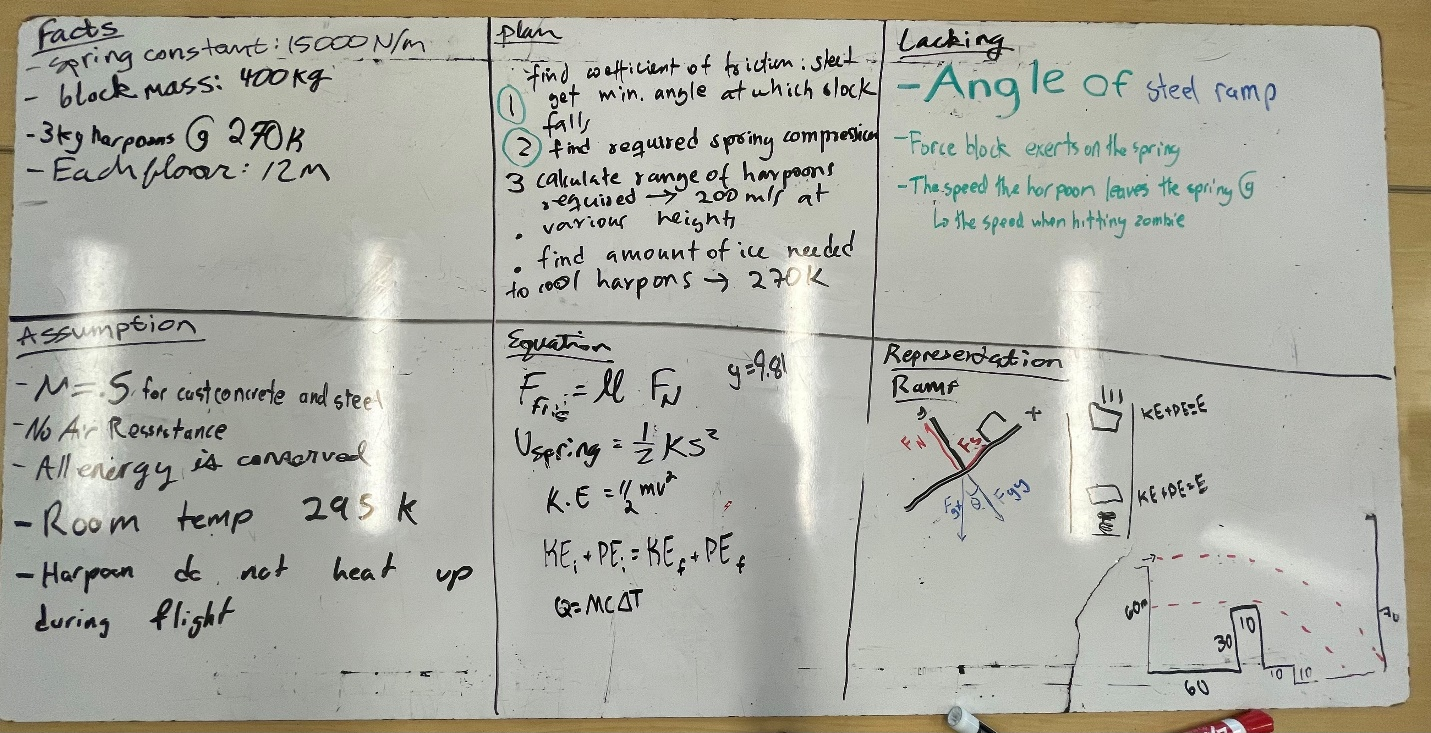 Facts
- Spring constant: 15000 N/m
- block mass: 400 kg
- 3kg harpoons @ 270K
- Each floor: 12M
Plan
find coefficient of friction: steel
① get min. angle at which block
falls
② find required spring compression
3 calculate range of harpoons
required → 200 m/s at
• various heights
• find amount of ice needed
to cool harpons → 270K
Lacking
- Angle of steel ramp
- Force block exerts on the spring
- The speed the harpoon leaves the spring @
↳ the speed when hitting zombie
Assumption
- M = .5 for cast concrete and steel
- No Air Ressistance
- All energy is conserved
- Room temp 295 k
- Harpoon do not heat up
during flight
Equation
g=9.81
F_fric = μ F_N
U_spring = 1/2 KS²
K.E = 1/2 mv²
KE_i + PE_i = KE_f + PE_f
Q=MCΔT
Representation
Ramp
+
F_N
F_s
F_g
θ
F_gy
KE+PE=E
KE+PE=E
60m
30
10
60
10
10
70